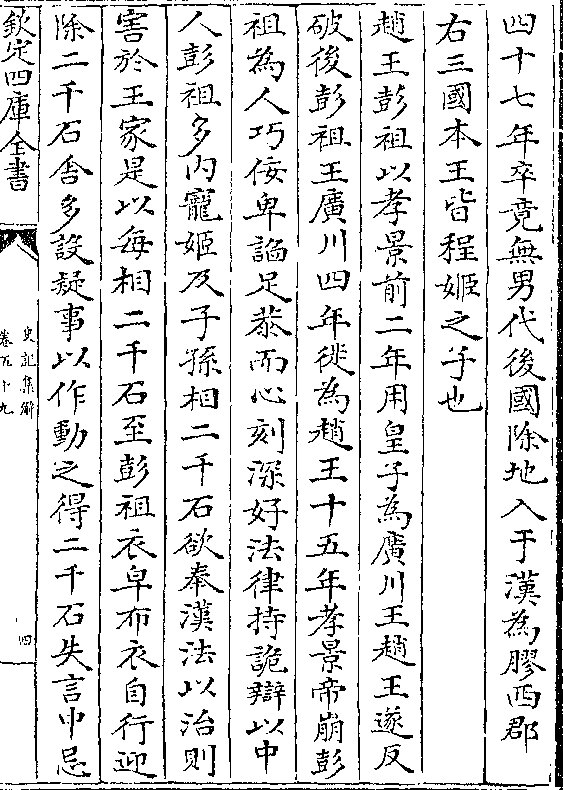 四十七年卒竟無男代後國除地入于漢為膠西郡
右三國本王皆程姬之子也
趙王彭祖以孝景前二年用皇子為廣川王趙王遂反
破後彭祖王廣川四年徙為趙王十五年孝景帝崩彭
祖為人巧佞卑諂足恭而心刻深好法律持詭辯以中
人彭祖多內寵姬及子孫相二千石欲奉漢法以治則
害於王家是以每相二千石至彭祖衣皁布衣自行迎
除二千石舍多設疑事以作動之得二千石失言中忌
欽定四庫全書
史記集解
卷五十九
四